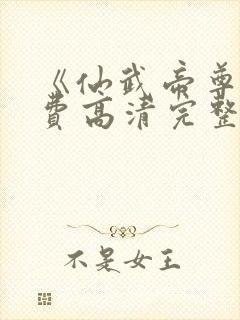 《仙武帝尊
费高清完整
不是女王